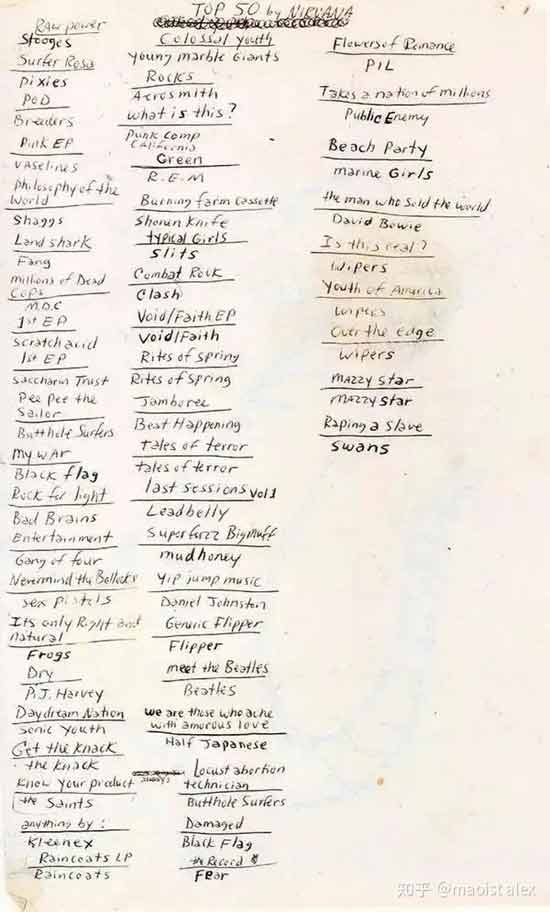 TOP 50 by NIRVANA
RAW power
Stooges
Surfer Rosa
Pixies
POD
Breeders
Pink EP
VASelines
Philosophy of the
World
Shaggs
Land shark
Fang
millions of Dead
Cops
M.D.C
1st EP
Scratch acid
1st EP
Saccharin Trust
Pee Pee the
Sailor
Butthole Surfers
My WAr
Black flag
Rock for light
Bad Brains
Entertainment
Gang of four
Nevermind the Bollocks
sex pistols
Its only Right and
natural
Frogs
Dry
P.J. Harvey
Daydream Nation
Sonic Youth
Get the Knack
the knack
Know Your product
the Saints
anything by :
Kleenex
Raincoats LP
Raincoats
Colossal Youth
Young Marble Giants
Rocks
Aerosmith
What is this?
Punk Comp
CALiFornia
Green
R.E.M
Burning farm Cassette
Shonen Knife
typical Girls
Slits
Combat Rock
Clash
Void/Faith EP
Void/Faith
Rites of Spring
Rites of Spring
Jamboree
Beat Happening
tales of terror
tales of terror
last sessions Vol 1
Leadbelly
Superfuzz Bigmuff
mudhoney
Yip jump music
Daniel Johnston
Generic Flipper
Flipper
meet the Beatles
Beatles
we are those who ache
with amorous love
Half Japanese
Locust abortion
technician
Butthole Surfers
Damaged
Black Flag
the Record
FeAr
Flowers of Romance
PIL
Takes a nation of millions
Public Enemy
Beach Party
marine Girls
the man who Sold the world
David Bowie
Is this real?
Wipers
Youth of America
Wipers
Over the edge
Wipers
MAZZy Star
MAZZy Star
Raping a Slave
Swans
知乎 @maoist alex